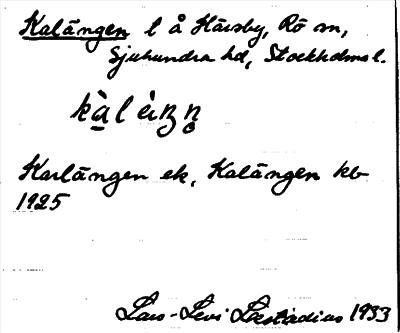 Kalängen l å Härsby, Rö sn,
Sjuhundra hd, Stockholms l.
kàlèŋn̥
Karlängen ek, Kalängen kb
1925
Lars-Levi Læstadius 1933